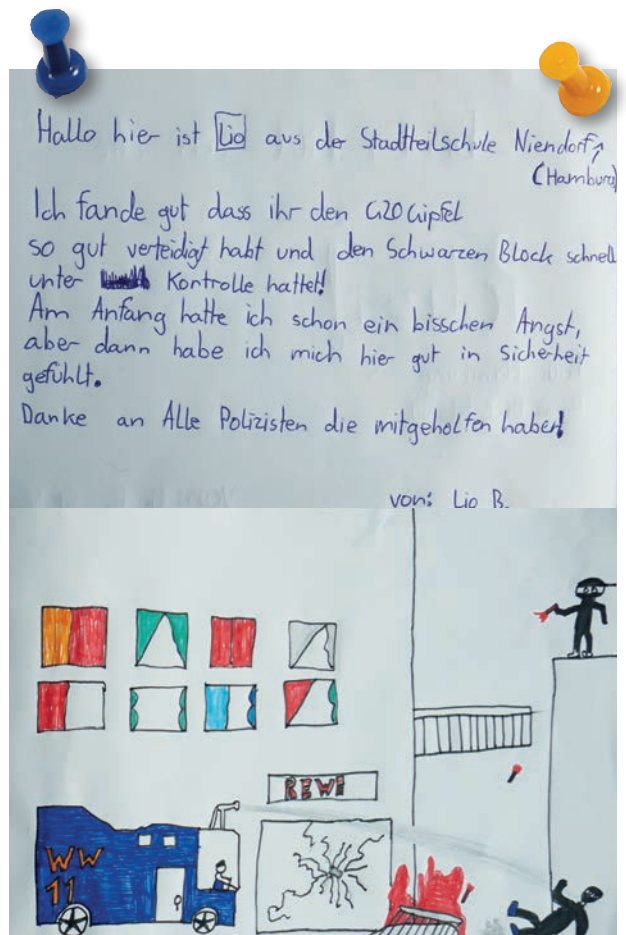 Hallo hier ist Lio aus der Stadtteilschule Niendorf,
(Hamburg)
Ich fande gut dass ihr den G20 Gipfel
so gut verteidigt habt und den Schwarzen Block schnell
unter Kontrolle hattet!
Am Anfang hatte ich schon ein bisschen Angst,
aber dann habe ich mich hier gut in Sicherheit
gefühlt.
Danke an Alle Polizisten die mitgeholfen haben!
von: Lio B.
REWE
WW
11